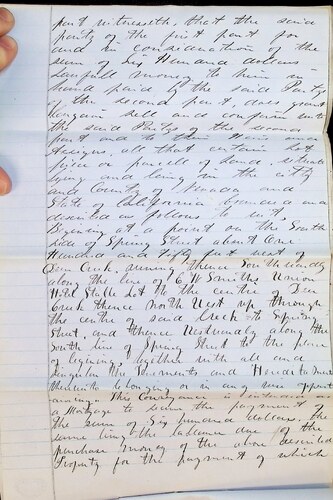 part witnesseth, that the said
party of the first part for
and in consideration of the
sum of Six Hundred dollars
Lawfull money to him in
hand paid by the said Party
of the second part, does grant
bargain sell and confirm unto
the said Partys of the second
part and to their Heirs and
Assigns, all that certain lot
piece or parcell of Land, situate
lying and being in the city
and County of Nevada and
State of California bounded and
described as follows to wit,
Begining at a point on the South
side of Spring Street about One
Hundred and fifty feet west of
Deer Creek, runing thence Southwardly
along the line of Smiths Union
Hotel Stable lot to the centre of Deer
Creek thence North West up through
the centre said Creek to Spring
Street, and thence Westwardly along the
South line of Spring Street to the place
of begining, together with all and
singular the Tenements and Hereditaments
thereunto belonging or in any wise apper-
taining. This Conveyance is intended as
a Mortgage to secure the payment of
the sum of Six hundred dollars, the
same being the balance due of the
purchase money of the above described
Property for the payment of which